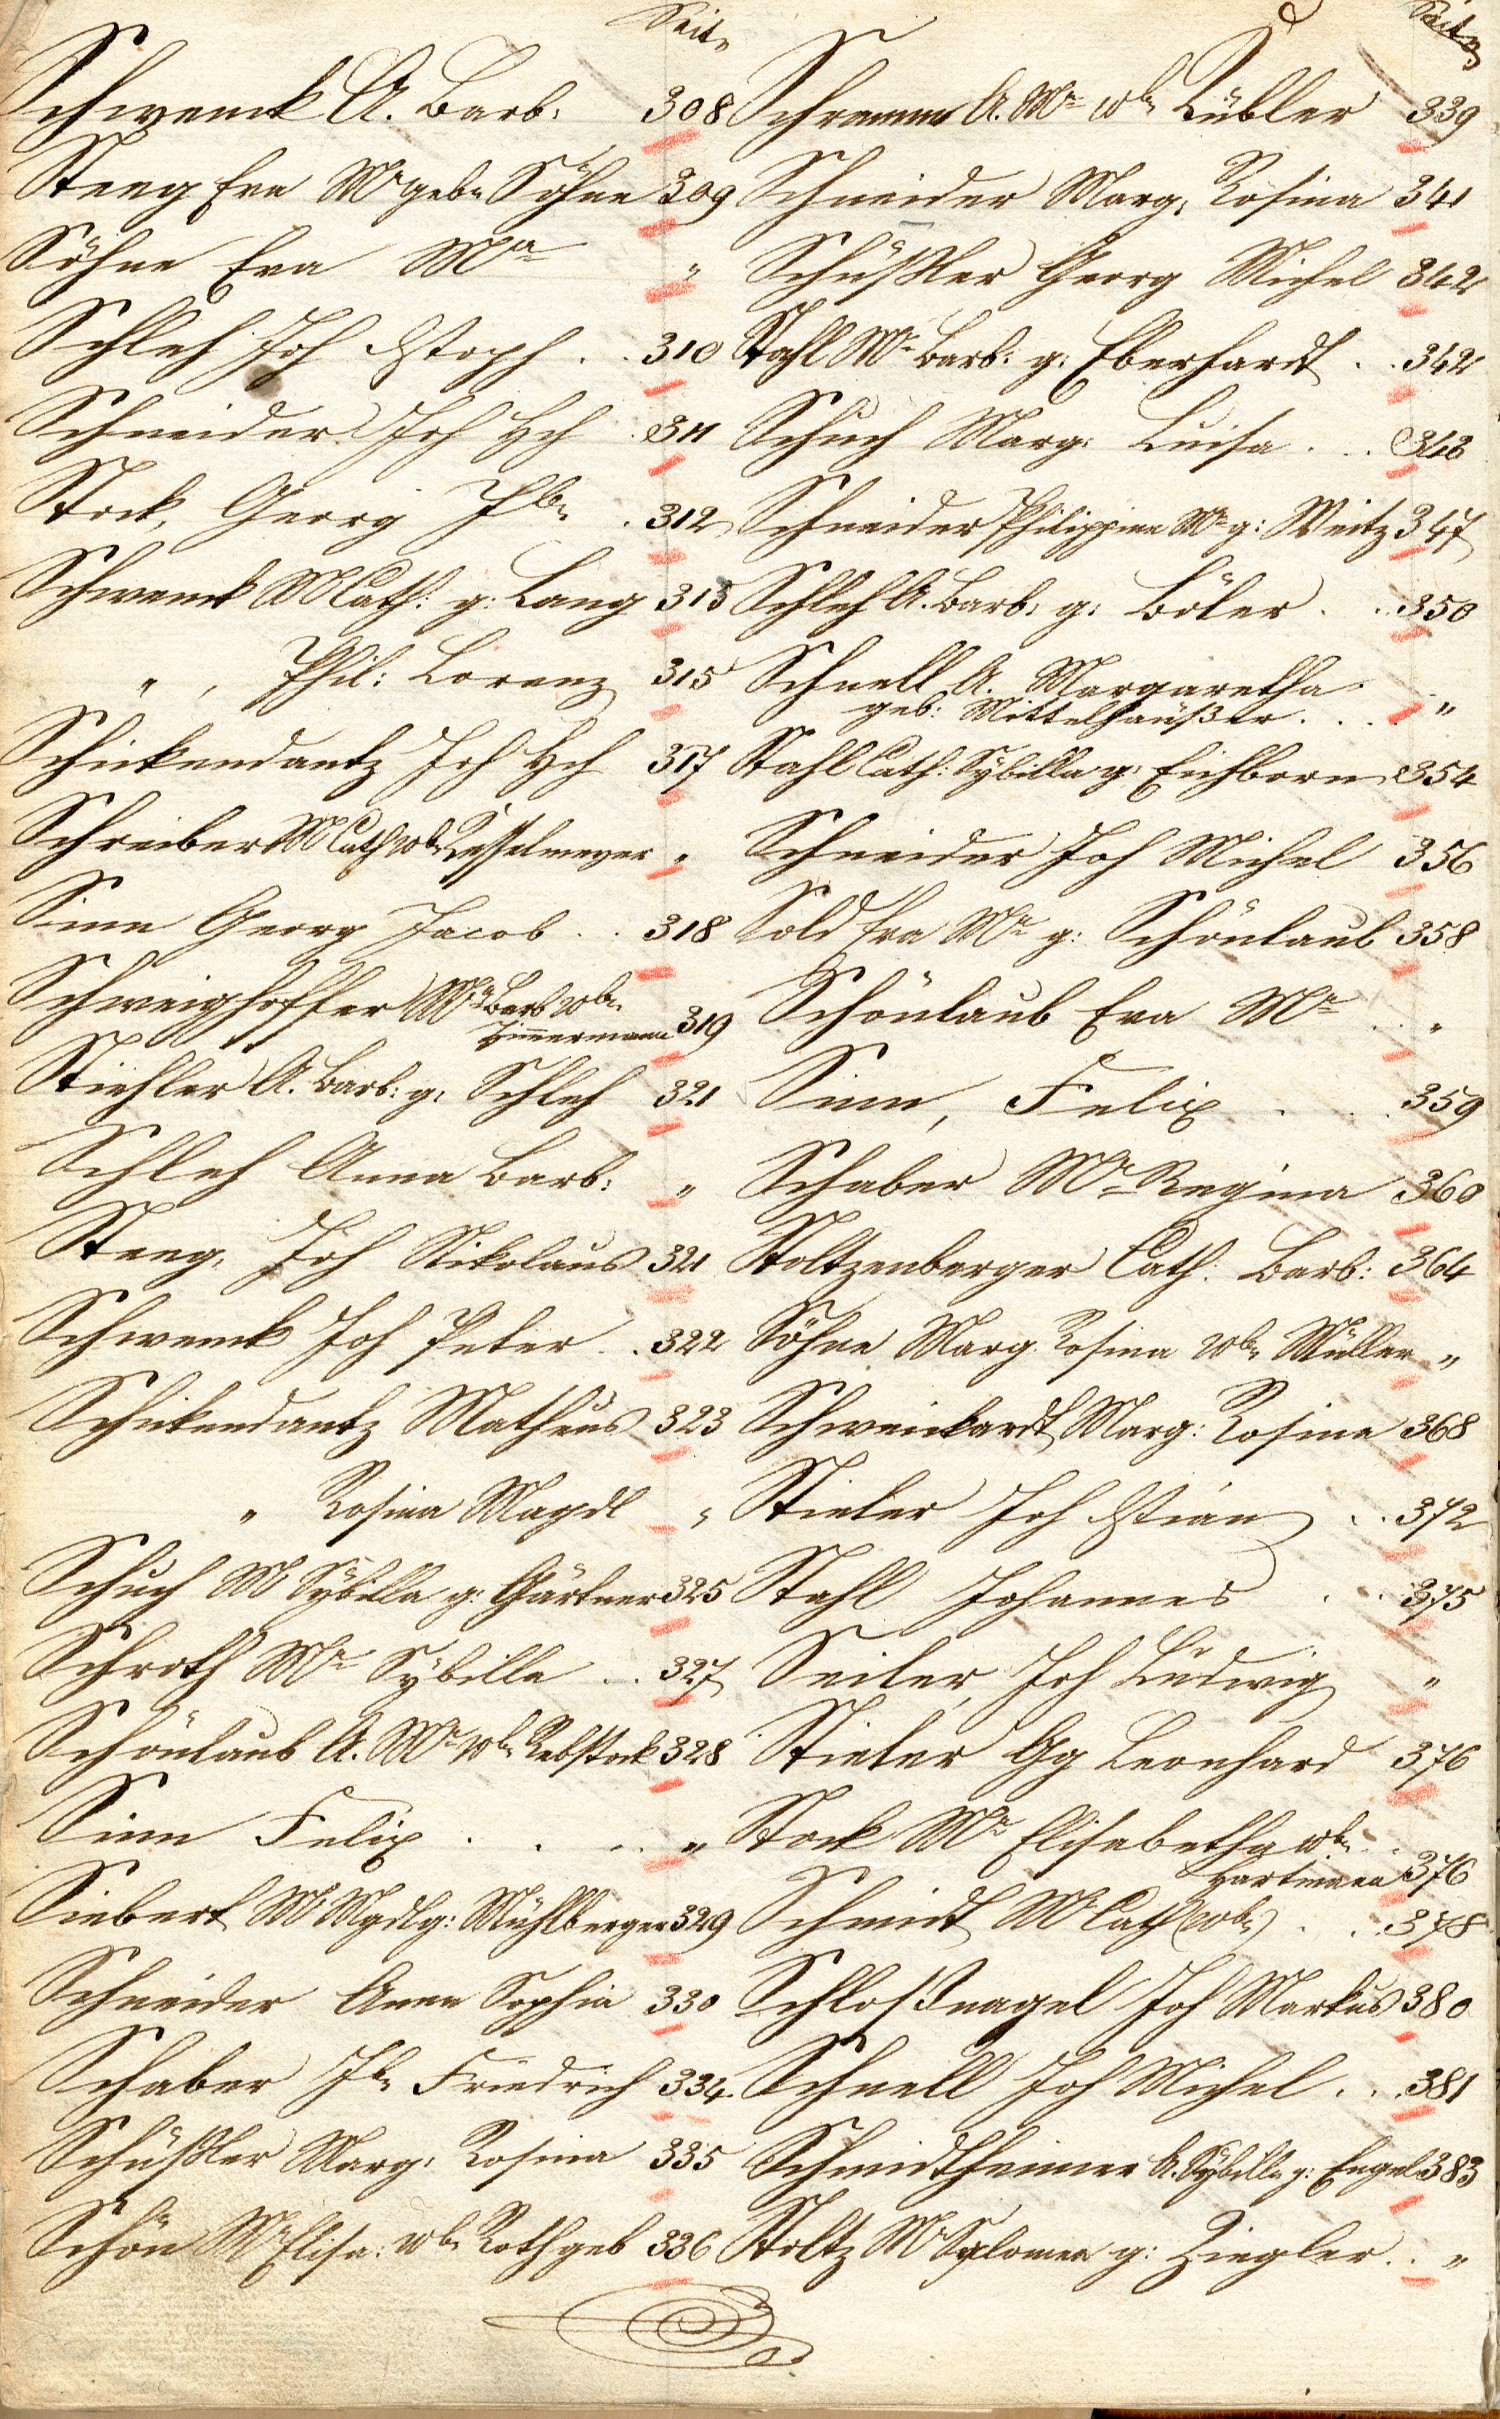 Seite
Schwenck A. Barb: 308
Steeg Eva Ma geb. Söhne 309
Söhne Eva Ma "
Schleh Joh Xstoph . . 310
Schneider Joh Hch . 311
Stock, Georg Jb . 312
Schwenck M Cath: g: Lang 313
" , Phil: Lorenz 315
Schickendantz Joh Hch 317
Schreiber M Cath wb Kesselmeyer "
Sinn Georg Jacob . . 318
Schweighoffer Ma Barb wb
Zimmermann 319
Stiehler A. Barb: g: Schleh 321
Schleh Anna Barb: "
Steeg, Joh Nikolaus 321
Schwenck Joh Peter . . 322
Schickendantz Matheus 323
" Rosina Magdl "
Schuch M Sÿbilla g: Gärtner 325
Schroth Ma Sÿbilla . . 327
Schönlaub A. Ma wb Rebstock 328
Sinn Felix . . . . "
Siebert M Mgdl g: Mühlberger 329
Schneider Anna Sophia 330
Schaber Jb Friedrich 334.
Schüßler Marg: Rosina 335
Schön Ma Elisa: wb Rothgeb 336
Seite
Schramm A. Ma wb Kübler 339
Schneider Marg: Rosina 341
Schüßler Georg Michel 342
Stahl Ma Barb: g: Eberhardt . . 342
Schuch Marg: Luisa . . . 343
Schneider Philippina Ma g: Weitz 347
Schleh A. Barb: g: Böler . . 350
Schnell A. Margaretha
geb: Mittelhaüßer . . . "
Stahl Cath: Sÿbilla g: Eichborn 354
Schneider Joh Michel 356
Sold Eva Ma g: Schönlaub 358
Schönlaub Eva Ma . . "
Sinn, Felix . . . 359
Schaber Ma Regina 360
Stoltzenberger Cath: Barb: 364
Söhne Marg Rosina wb Müller "
Schweickardt Marg: Rosina 368
Stieler Joh Xstian . . 372
Stahl Johannes . . 375
Seiler, Joh Ludwig "
Stieler Gg Leonhard 376
Stock Ma Elisabetha wb . .
Hartmann 376
Schmidt M Cath (wb) . . 378
Schloßnagel Joh Markus 380
Schnell Joh Michel . . . 381
Schmidtheimer A. Sÿbilla g: Engel 383
Stoltz Ma Salomea g: Ziegler . . "